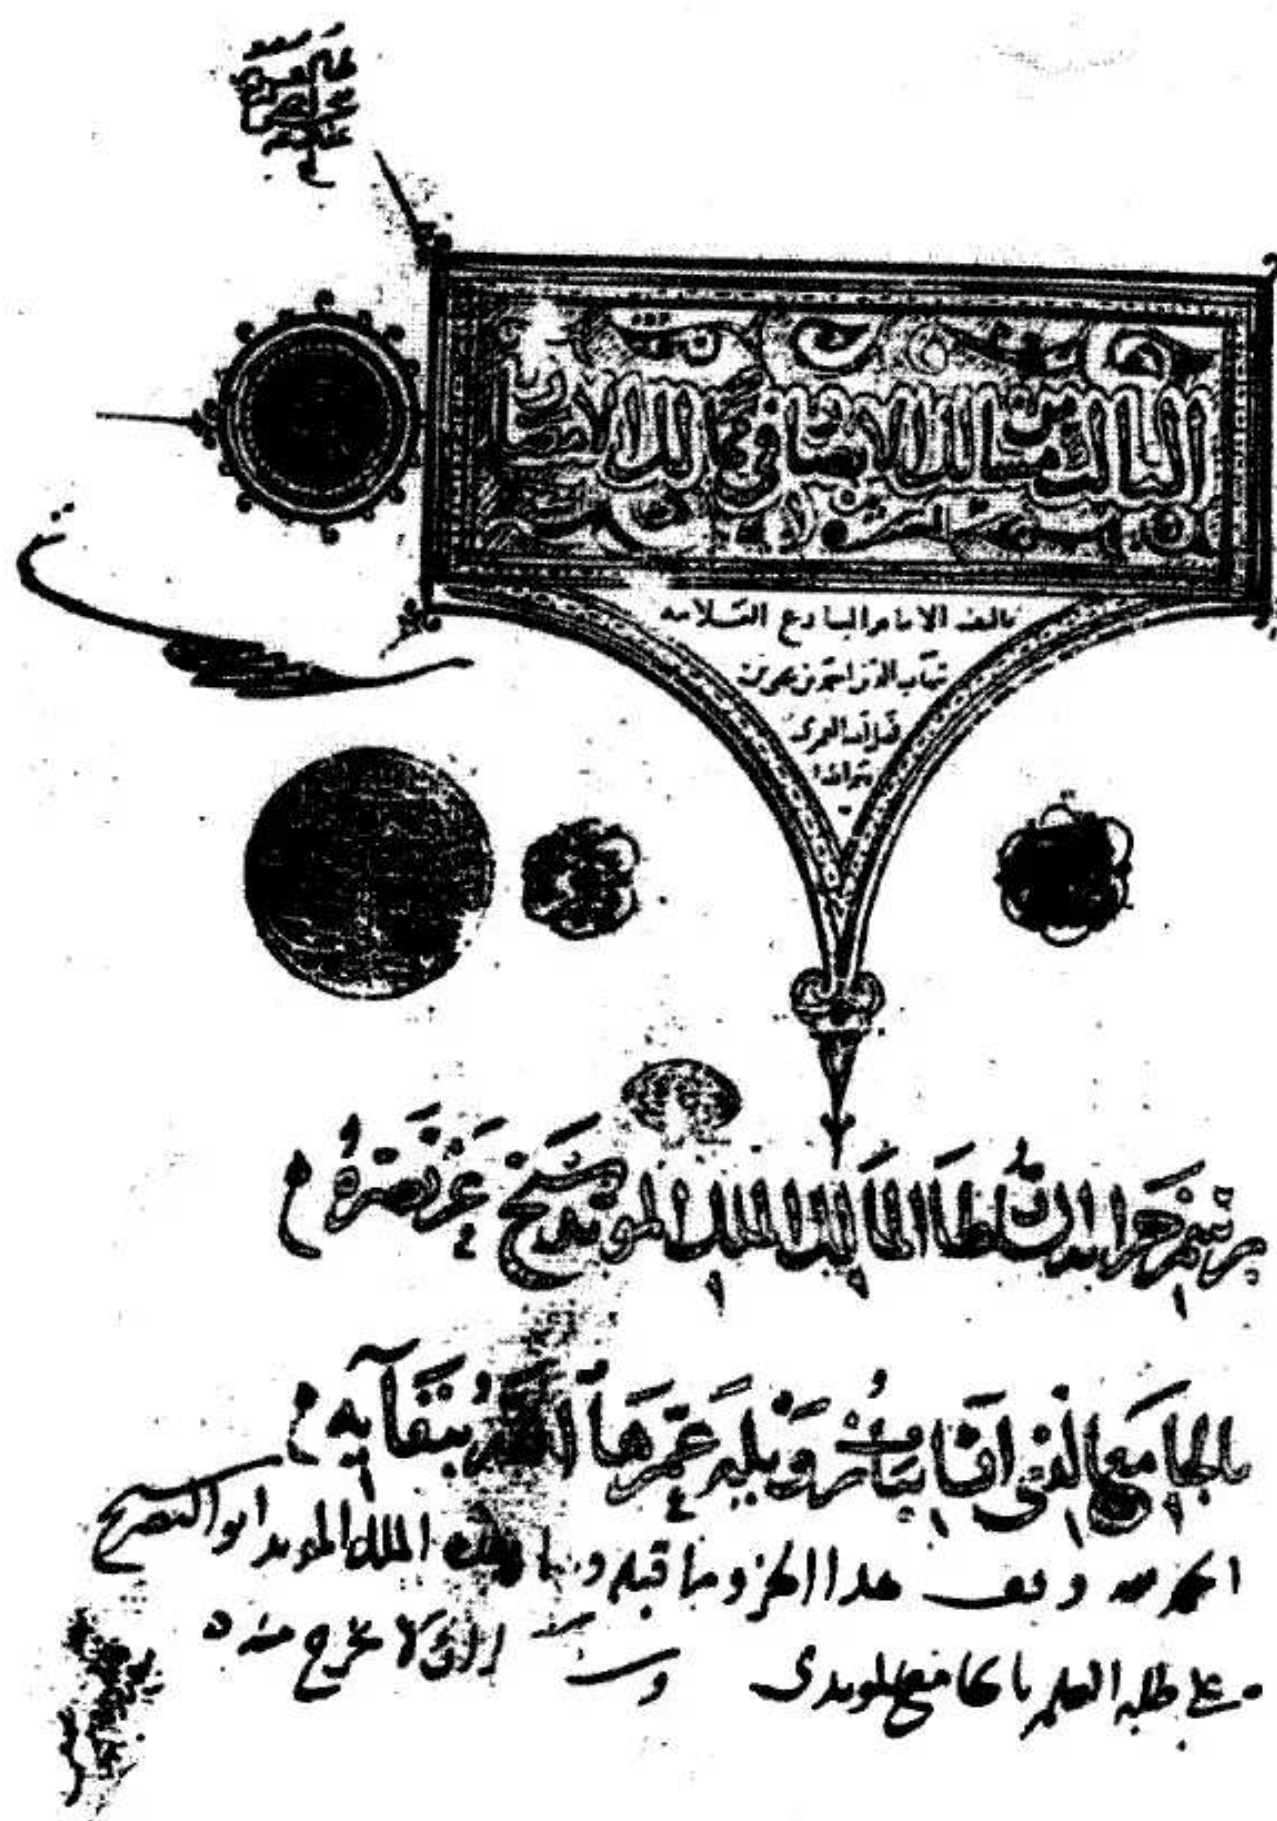 الثالث من مسالك الابصار في ممالك الامصار
تاليف الامام البارع العلامه
شهاب الدين احمد بن يحيى بن
فضل الله العمرى
رحمه الله
برسم خزانة السلطان المالك الملك المويد شيخ عز نصره
بالجامع الذى انشاه بباب زويلة عمرها الله ببقآيه
الحمد لله وقف هذا الجزو وما قبله وما بعده الملك المويد ابو النصر شيخ
على طلبه العلم بالجامع المويدى وشرط ان لا يخرج منه